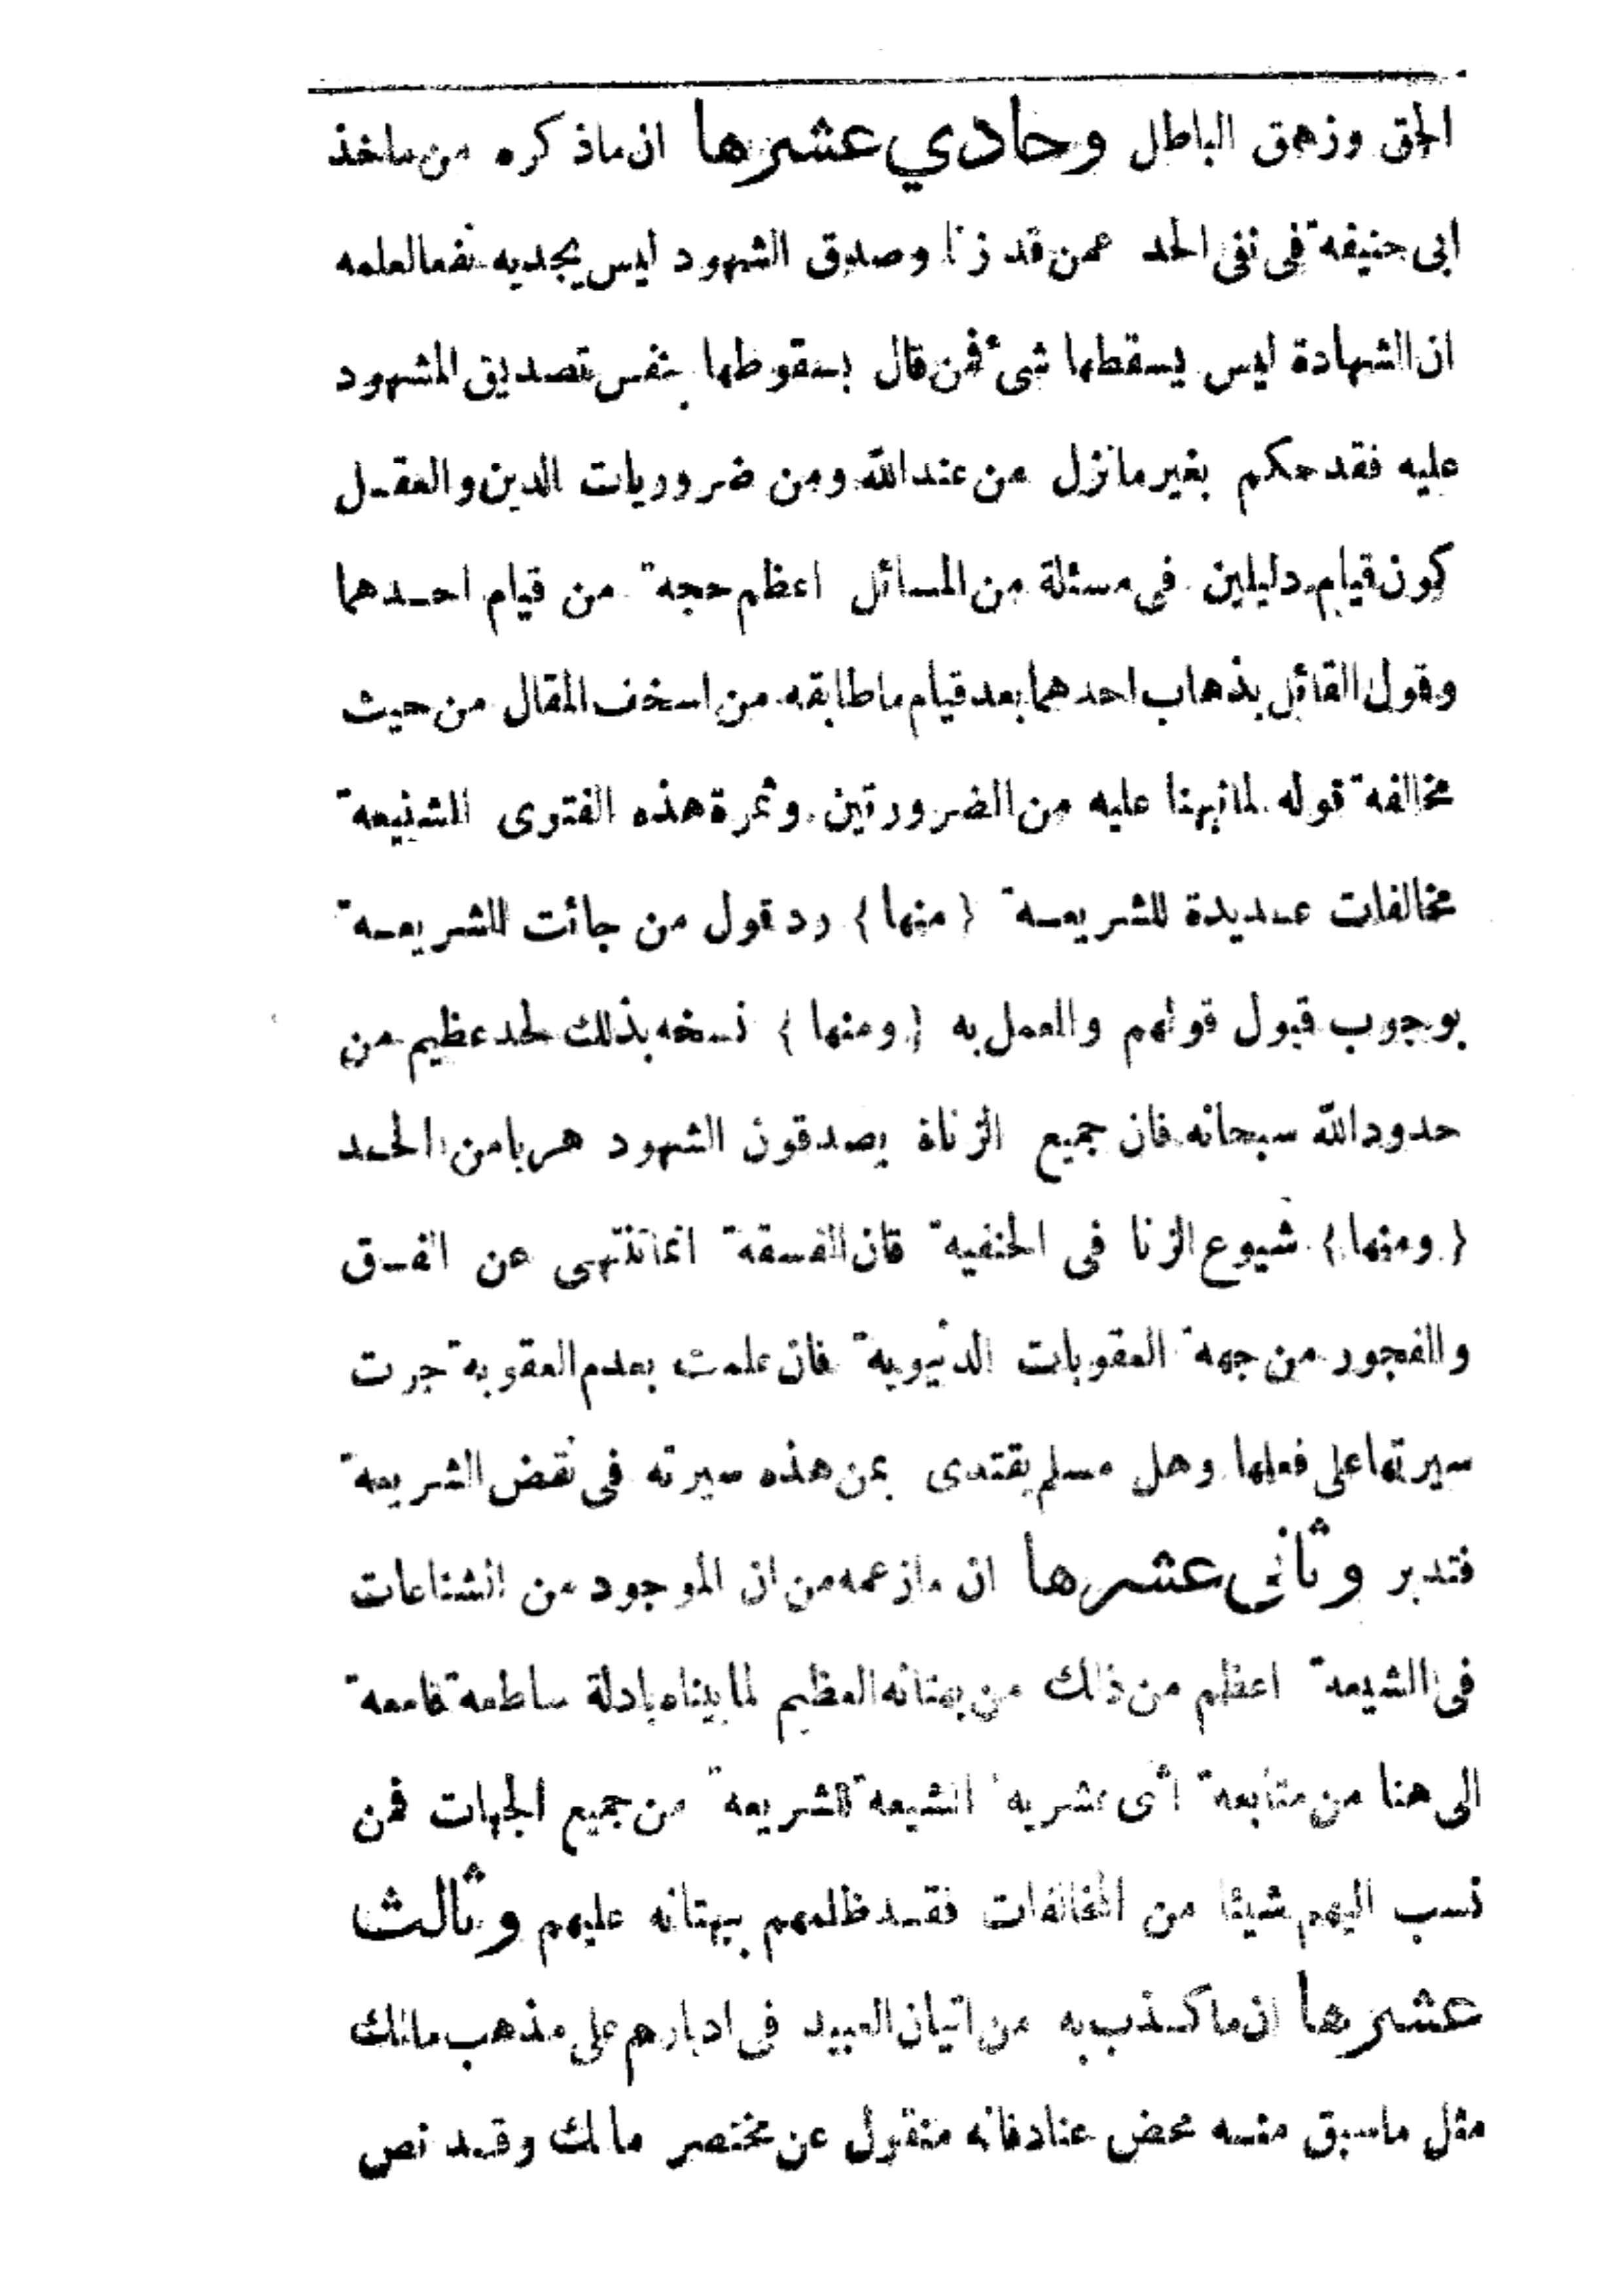 الحق وزهق الباطل وحادي عشرها ان ماذكره من ماخذ
ابى حنيفة فى نفى الحد عمن قد زنا وصدق الشهود ليس يجديه نفعا لعلمه
ان الشهادة ليس يسقطها شىء فمن قال بسقوطها بنفس تصديق المشهود
عليه فقد حكم بغير مانزل من عند الله ومن ضروريات الدين والعقل
كون قيام دليلين فى مسئلة من المسائل اعظم حجة من قيام احدهما
وقول القائل بذهاب احدهما بعد قيام ماطابقه من اسخف المقال من حيث
مخالفة قوله لمانبهنا عليه من الضرورتين وثمرة هذه الفتوى الشنيعة
مخالفات عديدة للشريعة { منها } رد قول من جائت الشريعة
بوجوب قبول قولهم والعمل به { ومنها } نسخه بذلك لحد عظيم من
حدود الله سبحانه فان جميع الزناة يصدقون الشهود هربا من الحد
{ ومنها } شيوع الزنا فى الحنفية فان الفسقة انماتنتهى عن الفسق
والفجور من جهة العقوبات الدنيوية فان علمت بعدم العقوبة جرت
سيرتها على فعلها وهل مسلم يقتدى بمن هذه سيرته فى نقض الشريعة
فتدبر وثانى عشرها ان مازعمه من ان الموجود من الشناعات
فى الشيعة اعظم من ذلك من بهتانه العظيم لما بيناه بادلة ساطعة قامعة
الى هنا من متابعة اثنى عشرية الشيعة للشريعة من جميع الجهات فمن
نسب اليهم شيئا من المخالفات فقد ظلمهم ببهتانه عليهم وثالث
عشرها ان ماكذب به من اتيان العبيد فى ادبارهم على مذهب مالك
مثل ماسبق منه محض عناد فانه منقول عن مختصر مالك وقد نص